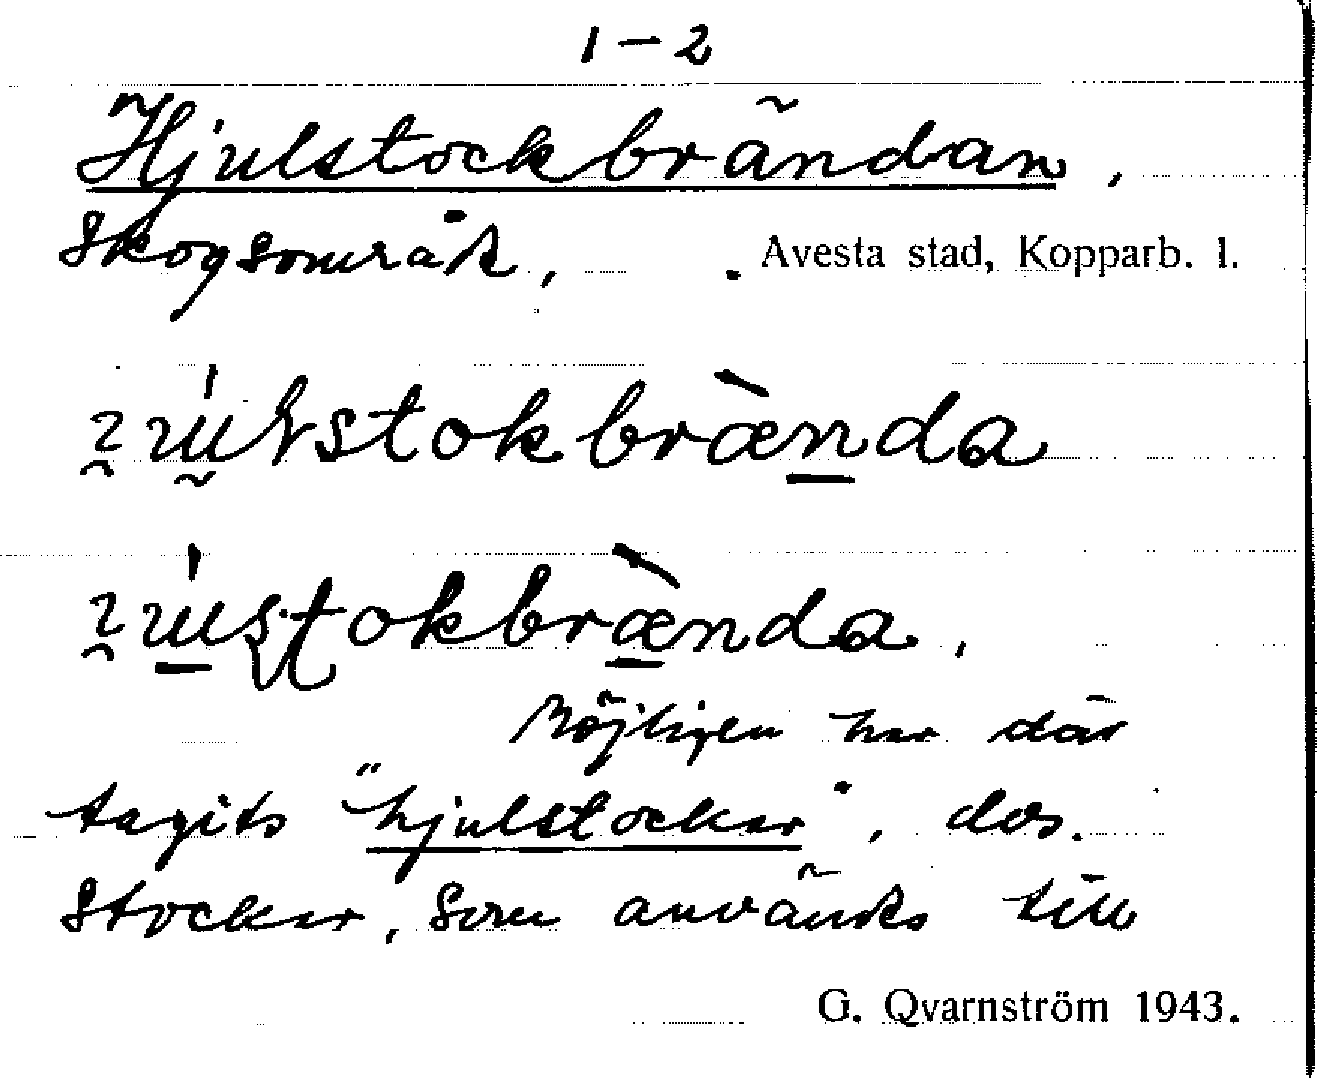 1-2
Hjulstockbrändan,
Skogsområde, Avesta stad, Kopparb. l.
Möjligen har där
tagits "hjulstockar", dvs.
stockar, som använts till
G. Qvarnström 1943.